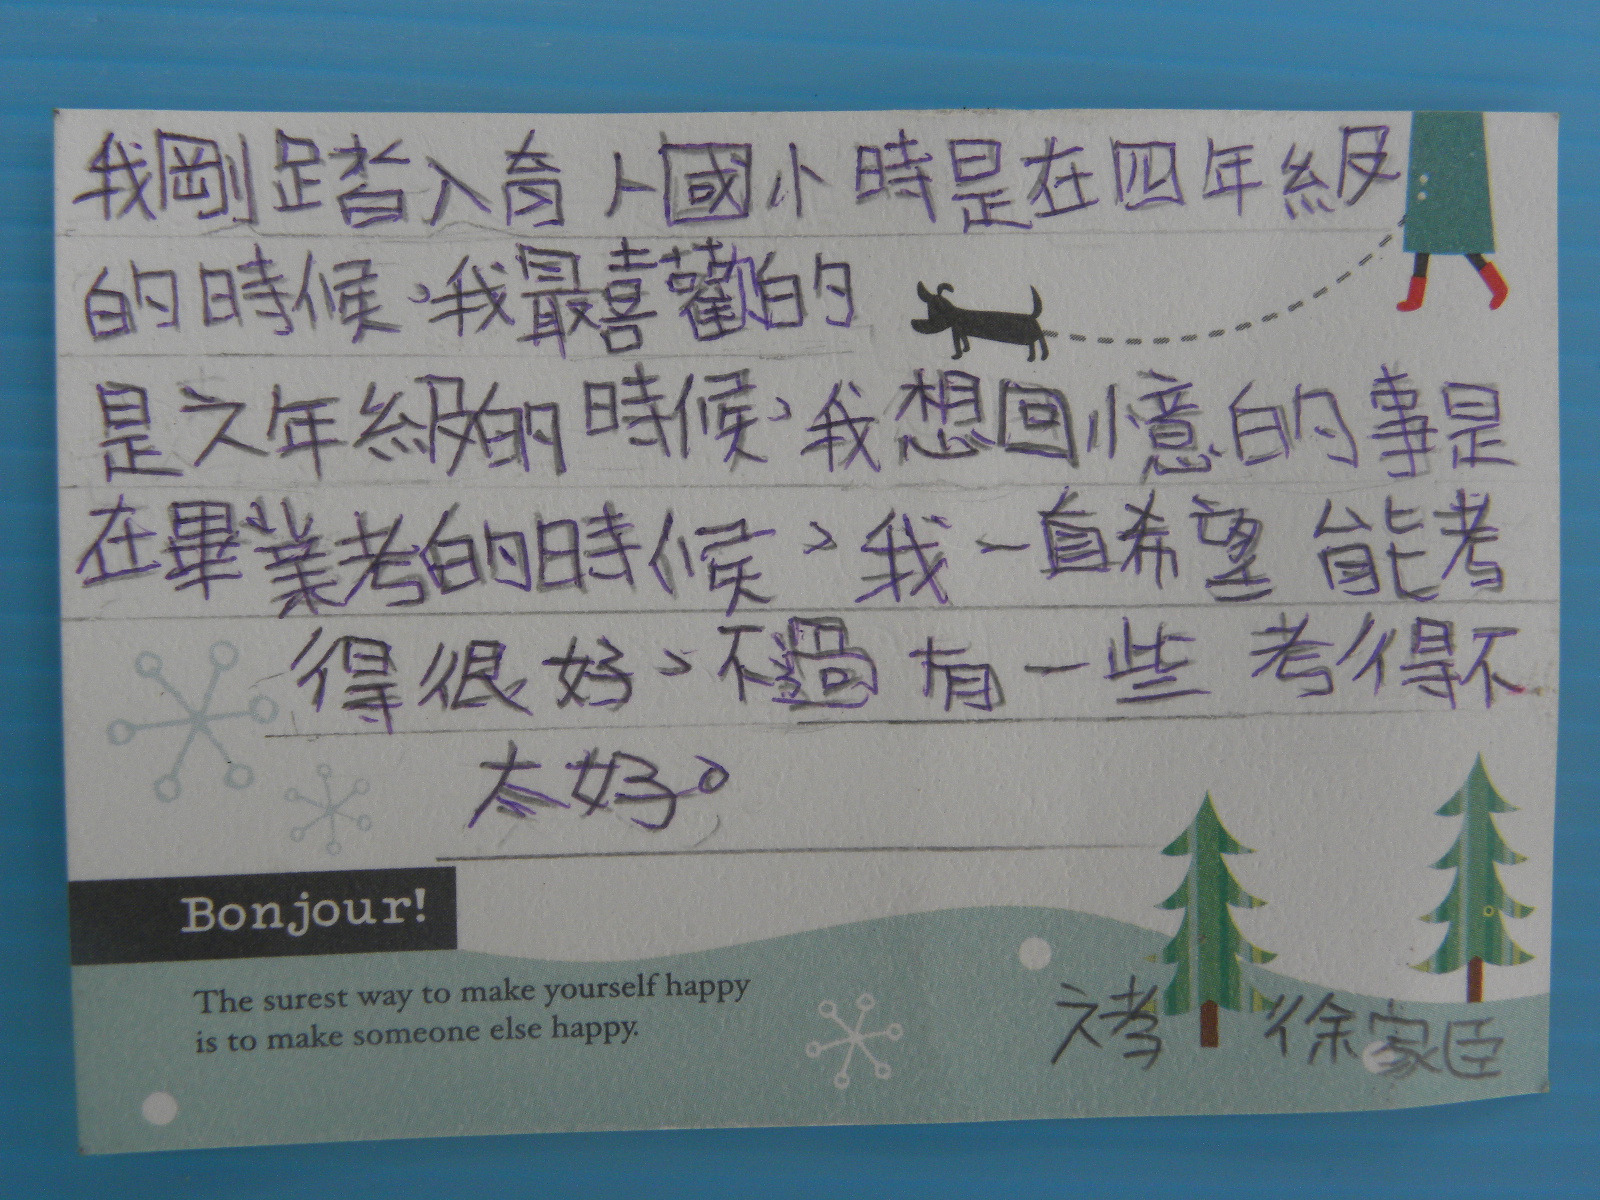 我剛踏入育人國小時是在四年級
的時候,我最喜歡的
是六年級的時候,我想回憶的事是
在畢業考的時候,我一直希望能考
得很好,不過有一些考得不
太好。
Bonjour!
The surest way to make yourself happy
is to make someone else happy.
六孝 徐家臣